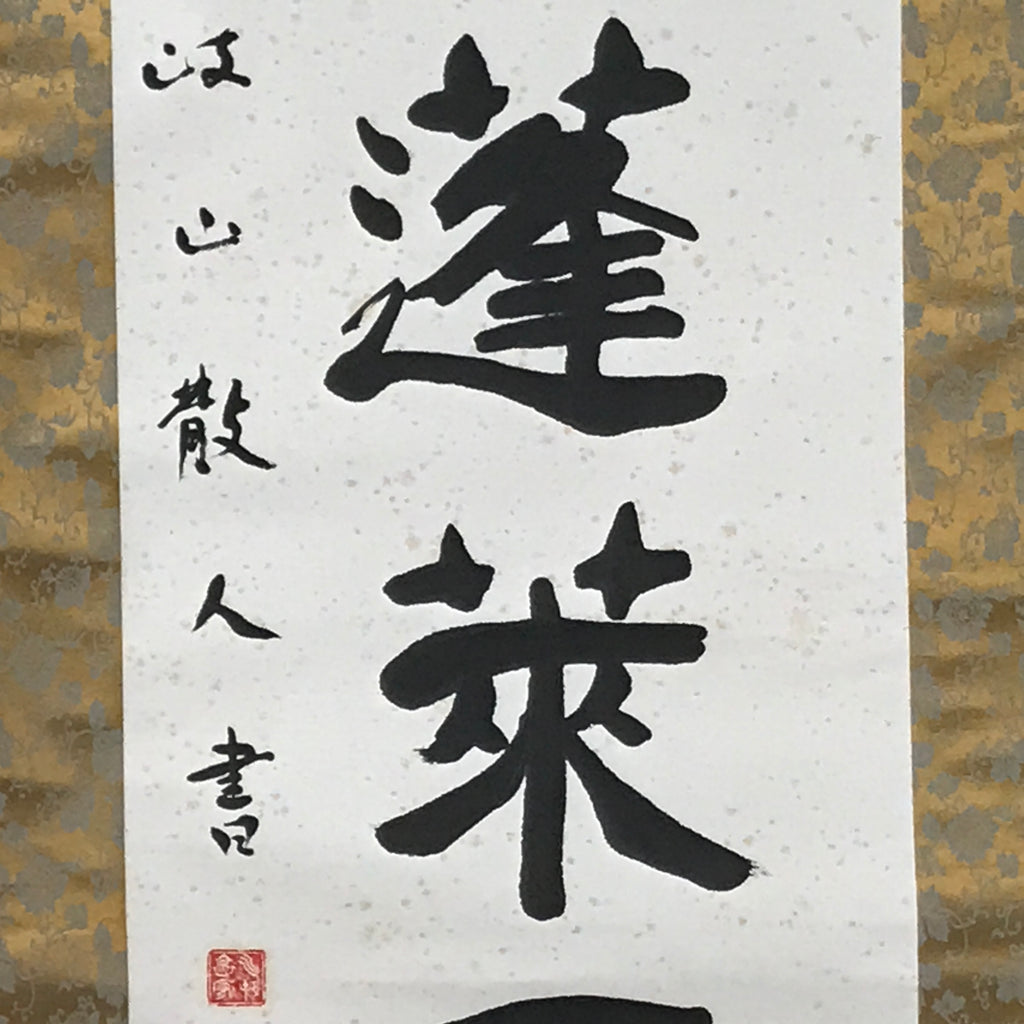 蓬萊
岐山散人書